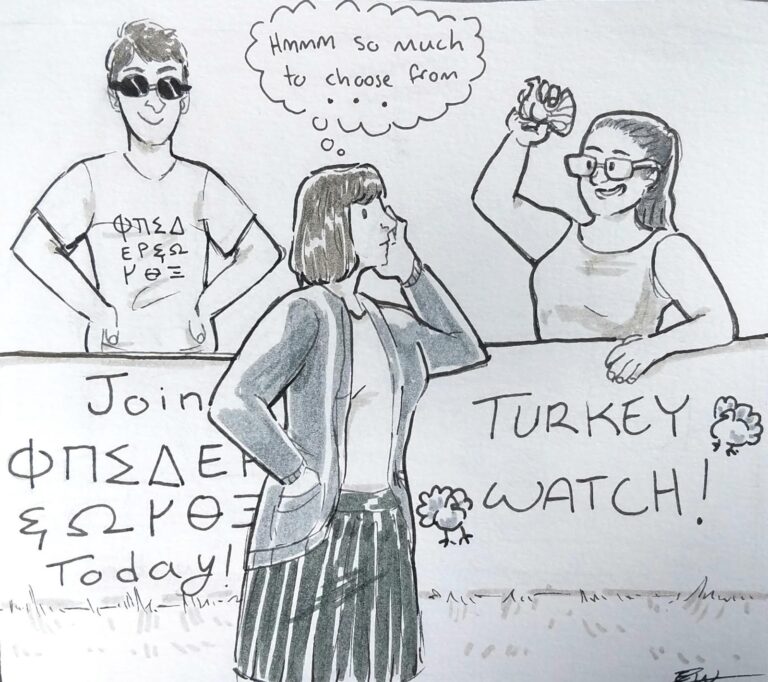 Hmmm so much
to choose from
...
ΦΠΣΔ
ΕΡξΩ
ΥΘΞ
Join
ΦΠΣΔΕΡ
ξΩΥΘΞ
Today!
TURKEY
WATCH!